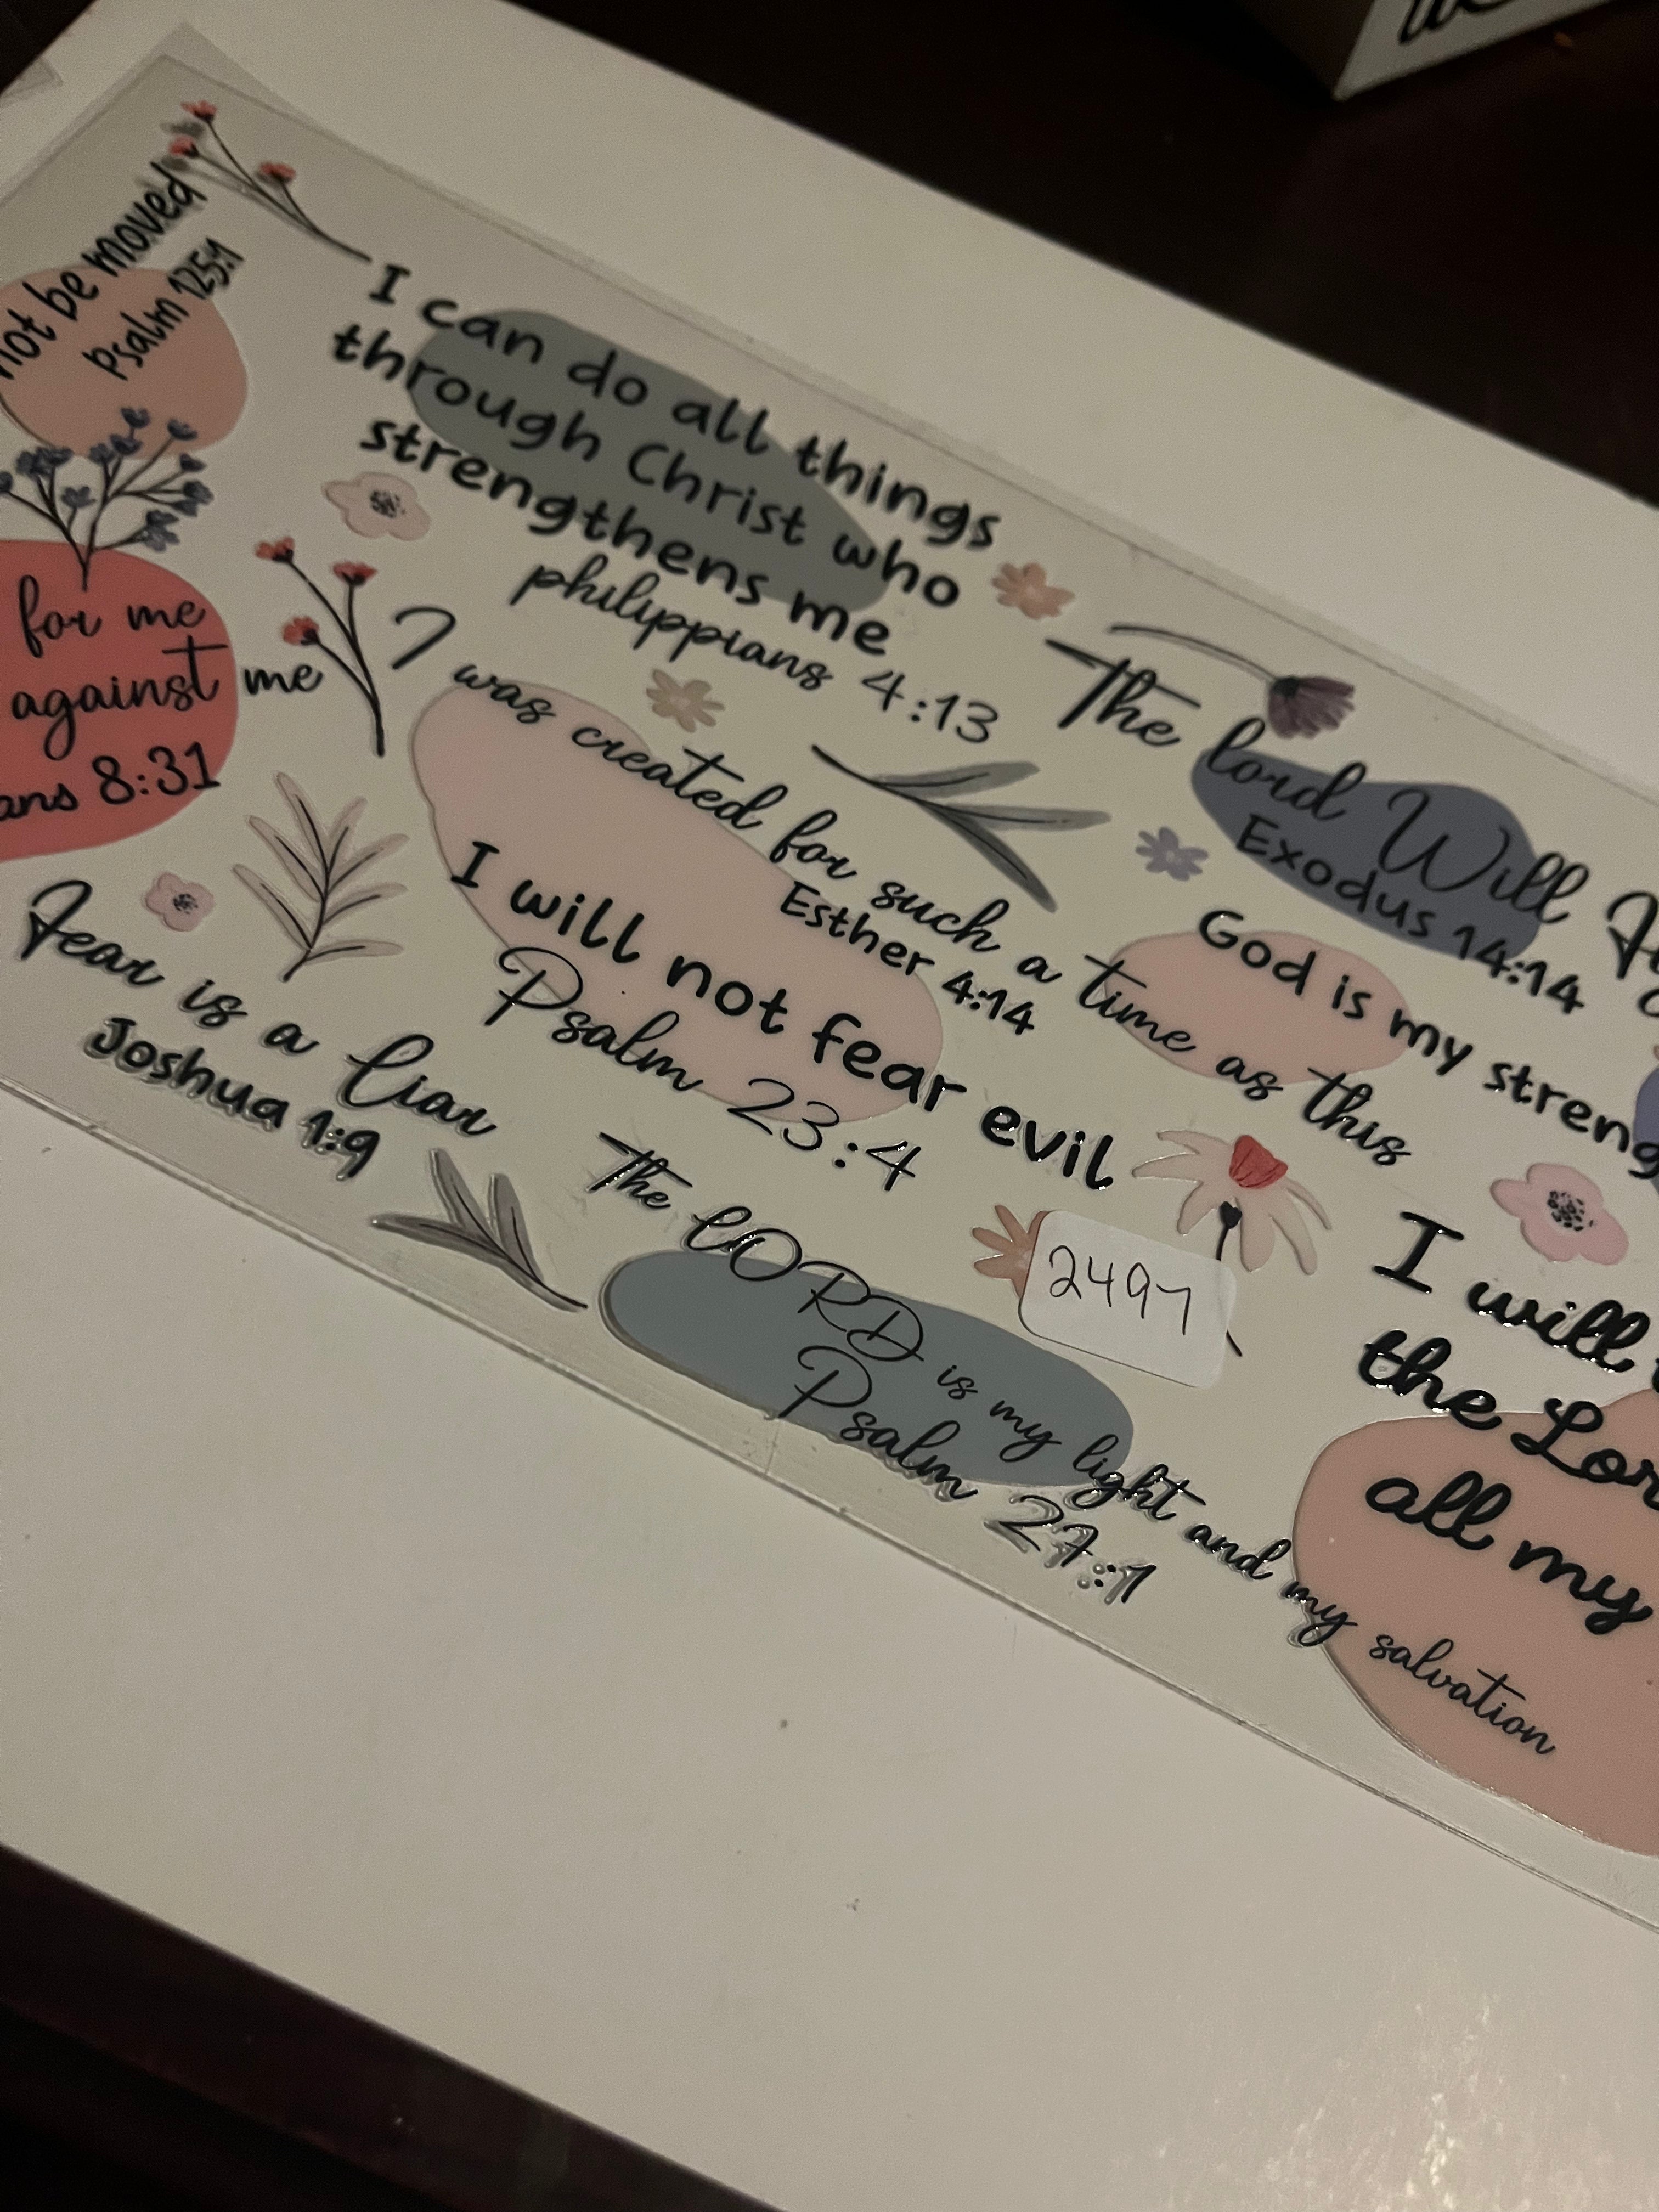 not be moved
Psalm 125:1
for me
against me
8:31
Fear is a liar
Joshua 1:9
I can do all things
through Christ who
strengthens me
philippians 4:13
I was created for such a time as this
Esther 4:14
I will not fear evil
Psalm 23:4
The LORD is my light and my salvation
Psalm 27:1
2497
The lord Will
Exodus 14:14
God is my
I will
the
all my